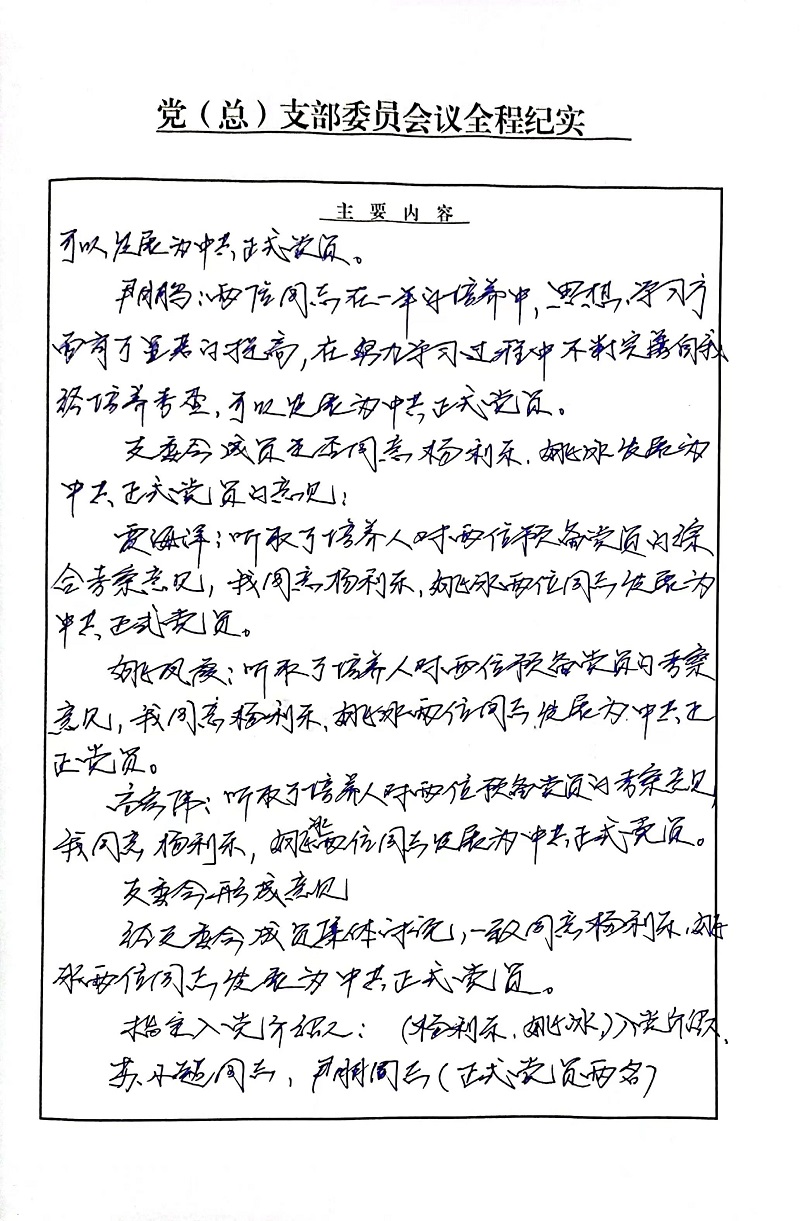 党（总）支部委员会议全程纪实
主要内容
可以发展为中共正式党员。
尹鹏：两位同志在一年的培养中，思想、学习方
面有了显著的提高，在努力学习过程中不断完善自我
经培养考查，可以发展为中共正式党员。
支委会成员是否同意杨利乐、姚冰发展为
中共正式党员的意见：
贾海洋：听取了培养人对两位预备党员的综
合考察意见，我同意杨利乐、姚冰两位同志发展为
中共正式党员。
姚凤霞：听取了培养人对两位预备党员的考察
意见，我同意杨利乐、姚冰两位同志发展为中共正
正党员。
高宏伟：听取了培养人对两位预备党员的考察意见，
我同意杨利乐，姚冰两位同志发展为中共正式党员。
支委会形成意见
经支委会成员集体讨论，一致同意杨利乐、姚
冰两位同志发展为中共正式党员。
指定入党介绍人：（杨利乐、姚冰）入党介绍人、
苏小超同志，尹鹏同志（正式党员两名）